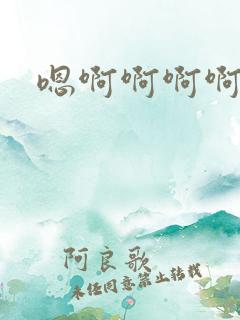 嗯啊啊啊啊
阿良歌
未经同意禁止转载